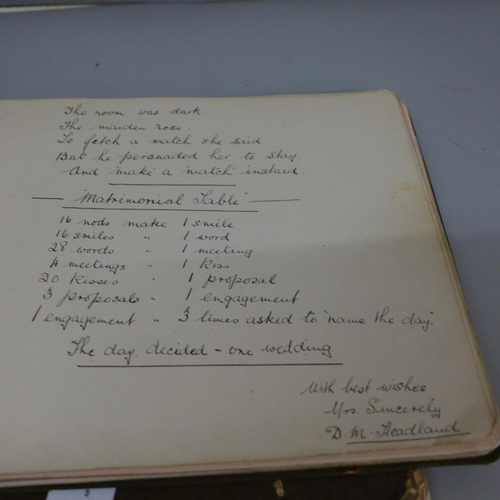 The room was dark.
The maiden rose.
To fetch a match she said
But he persuaded her to stay
And make a match instead.
Matrimonial Table
16 nods make 1 smile
16 smiles " 1 word
28 words " 1 meeting
4 meetings " 1 kiss
20 kisses " 1 proposal
3 proposals " 1 engagement
1 engagement " 3 times asked to "name the day".
The day decided - one wedding
With best wishes
Yrs. Sincerely
D. M. Headland